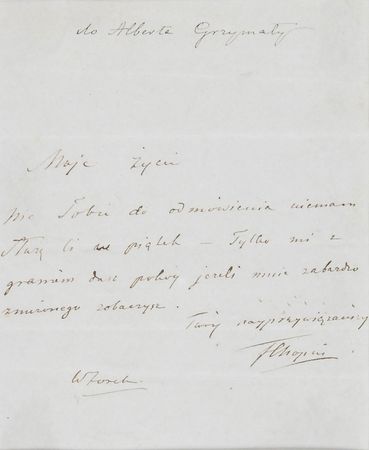 do Alberta Grzymały
Moje Życie
nic Tobie do odmówienia niemam
Służę Ci w piątek – Tylko mi z
graniem dasz pokój jeżeli mnie zabardzo
zmęczonego zobaczysz.
Twój najprzywiązańszy
FChopin
Wtorek.